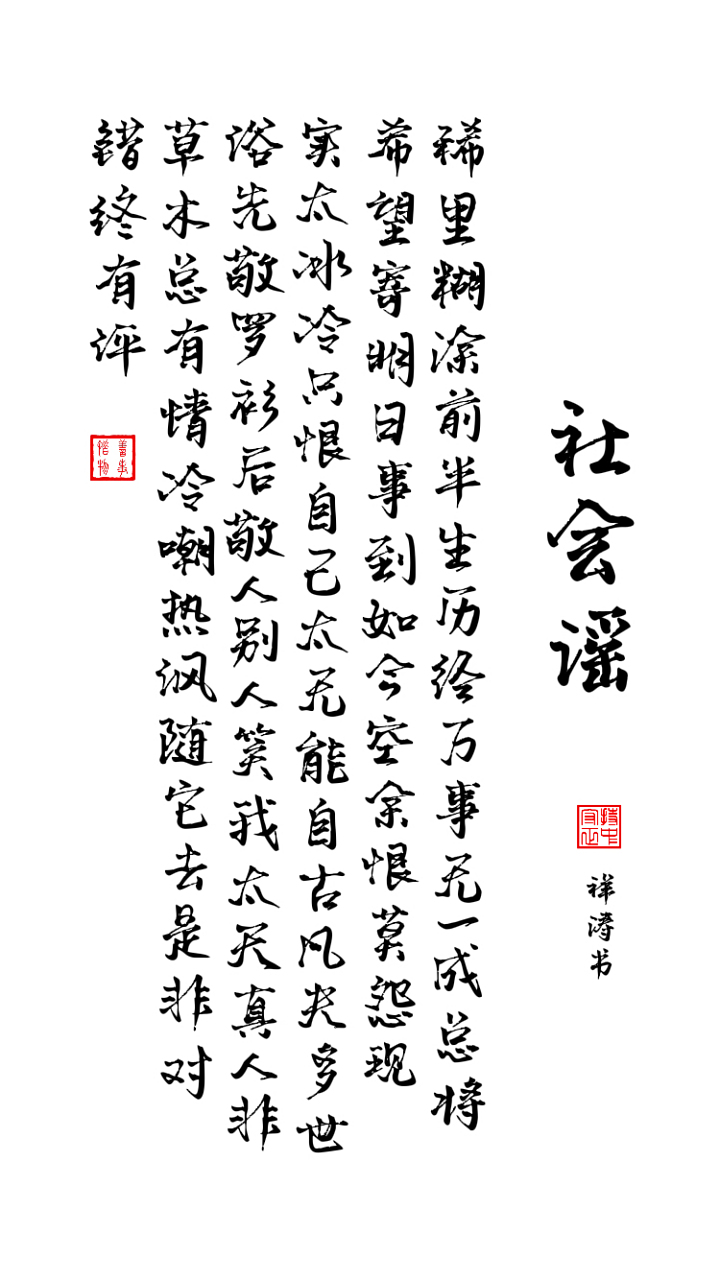 社会谣
祥涛书
稀里糊涂前半生历经万事无一成总将
希望寄明日事到如今空余恨莫怨现
实太冰冷只恨自己太无能自古风光多世
俗先敬罗衫后敬人别人笑我太天真人非
草木总有情冷嘲热讽随它去是非对
错终有评